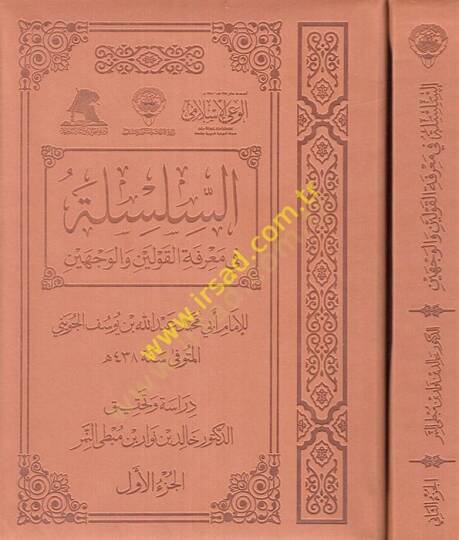 الوعي الإسلامي
السِّلسِلة
في معرفة القولين والوجهين
للإمام أبي محمد عبدالله بن يوسف الجويني
المتوفى سنة ٤٣٨هـ
دراسة وتحقيق
الدكتور خالد بن نوار بن مبطي النمر
الجزء الأول
السلسلة في معرفة القولين والوجهين
الدكتور خالد بن نوار بن مبطي النمر
الجزء الثاني
www.irsad.com.tr